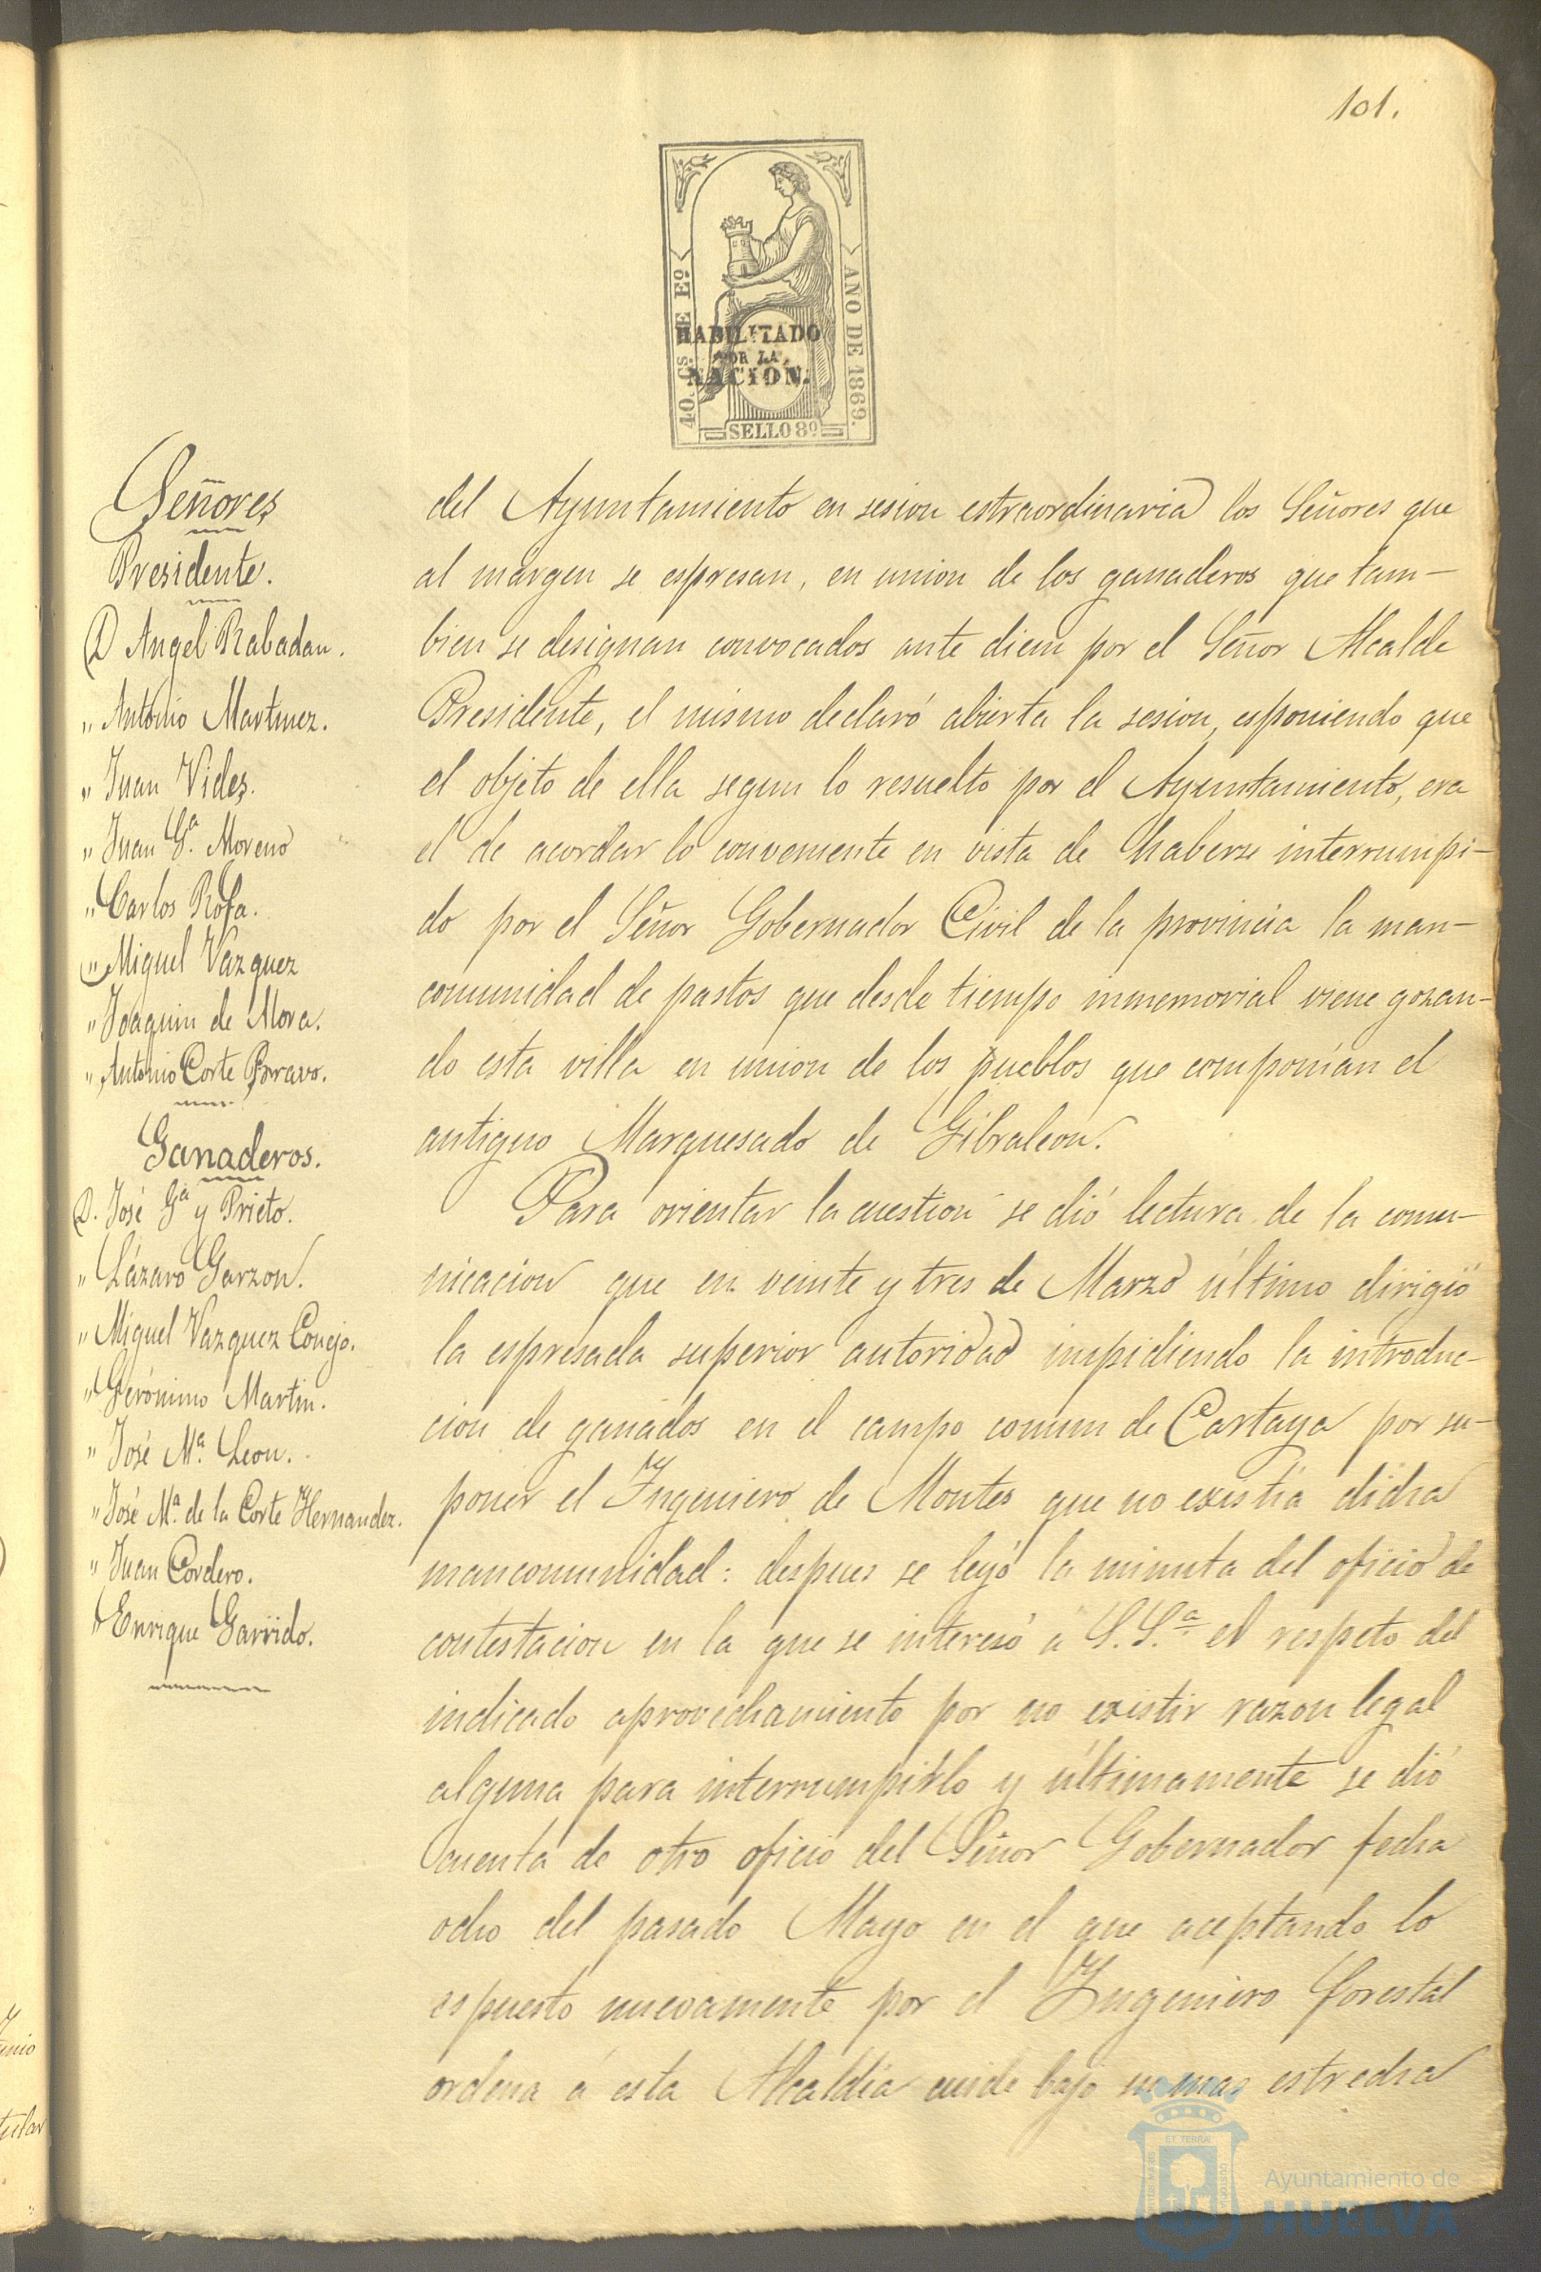 101.
40. Cs DE Eº
AÑO DE 1869.
HABILITADO
POR LA
NACION.
SELLO 8º
Señores
Presidente.
D Angel Rabadan.
" Antonio Martinez.
" Juan Vides.
" Juan Gª. Moreno
" Carlos Rofa.
" Miguel Vazquez
" Joaquin de Mora.
" Antonio Corte Bravo.
Ganaderos.
D. José Gª y Prieto.
" Lázaro Garzon.
" Miguel Vazquez Conejo.
" Gerónimo Martin.
" José Mª. Leon.
" José Mª. de la Corte Hernandez.
" Juan Cordero.
" Enrique Garrido.
del Ayuntamiento en sesion estraordinaria los Señores que
al margen se espresan, en union de los ganaderos que tam-
bien se designan convocados ante diem por el Señor Alcalde
Presidente, el mismo declaró abierta la sesion, esponiendo que
el objeto de ella segun lo resuelto por el Ayuntamiento, era
el de acordar lo conveniente en vista de haberse interrumpi-
do por el Señor Gobernador Civil de la provincia la man-
comunidad de pastos que desde tiempo inmemorial viene gozan-
do esta villa en union de los pueblos que componian el
antiguo Marquesado de Gibraleon.
Para orientar la cuestion se dió lectura de la comu-
nicacion que en veinte y tres de Marzo último dirigió
la espresada superior autoridad impidiendo la introduc-
cion de ganados en el campo comun de Cartaya por su-
poner el Ingeniero de Montes que no existia dicha
mancomunidad: despues se leyó la minuta del oficio de
contestacion en la que se interesó á S. S.ª el respeto del
indicado aprovechamiento por no existir razon legal
alguna para interrumpirlo y últimamente se dió
cuenta de otro oficio del Señor Gobernador fecha
ocho del pasado Mayo en el que aceptando lo
espuesto nuevamente por el Ingeniero forestal
ordena á esta Alcaldia cuide bajo su mas estrecha
ET TERRAE
Ayuntamiento de
HUELVA